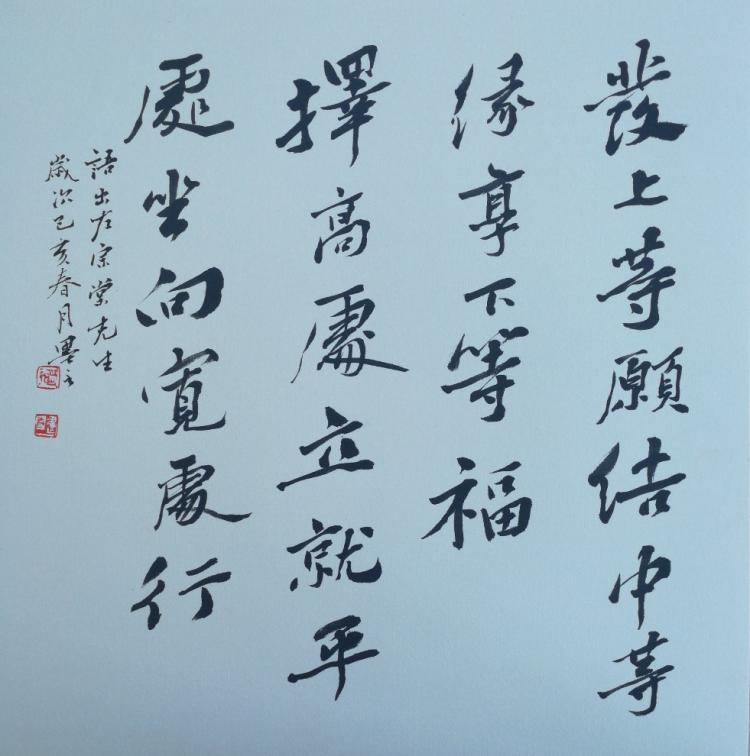 發上等願結中等
緣享下等福
擇高處立就平
處坐向寬處行
語出左宗棠先生
歲次己亥春月墨